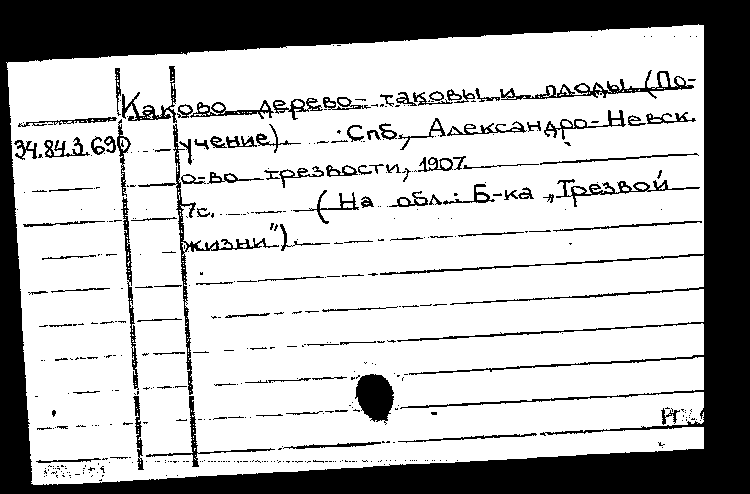 Каково дерево- таковы и плоды. (По-
34.84.3.690 учение). Спб., Александро-Невск.
о-во трезвости, 1907.
7с. (На обл.: Б-ка „Трезвой
жизни").